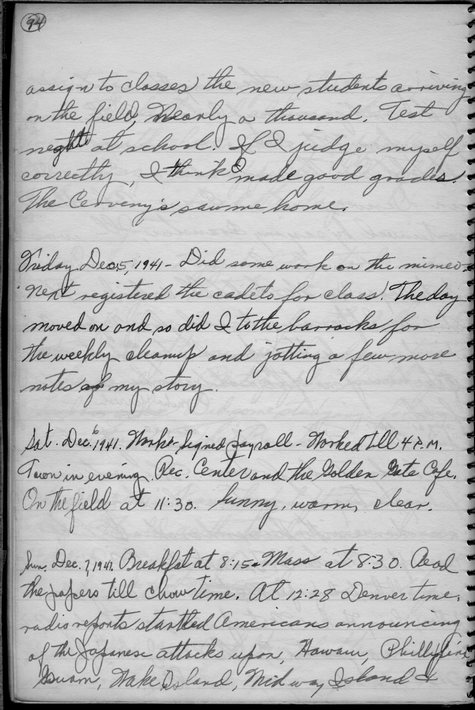 94
assign to classes the new students arriving
on the field. Nearly a thousand. Test
night at school. If I judge myself
correctly, I think I made good grades.
The Cerveny's saw me home.
Friday Dec. 5, 1941 - Did some work on the mimeo
Next registered the cadets for class. The day
moved on and so did I to the barracks for
the weekly cleanup and jotting a few more
notes of my story.
Sat. Dec. 6 1941. Work & Signed payroll - Worked till 4 P.M.
Town in evening. Rec. Center and the Golden Gate Cafe.
On the field at 11:30. Sunny, warm, clear.
Sun, Dec. 7, 1941. Breakfst at 8:15 - Mass at 8:30. Read
the papers till chow time. At 12:28 Denver time,
radio reports startled Americans announcing
of the Japanese attacks upon, Hawaii, Phillipine
Guam, Wake Island, Midway Island &